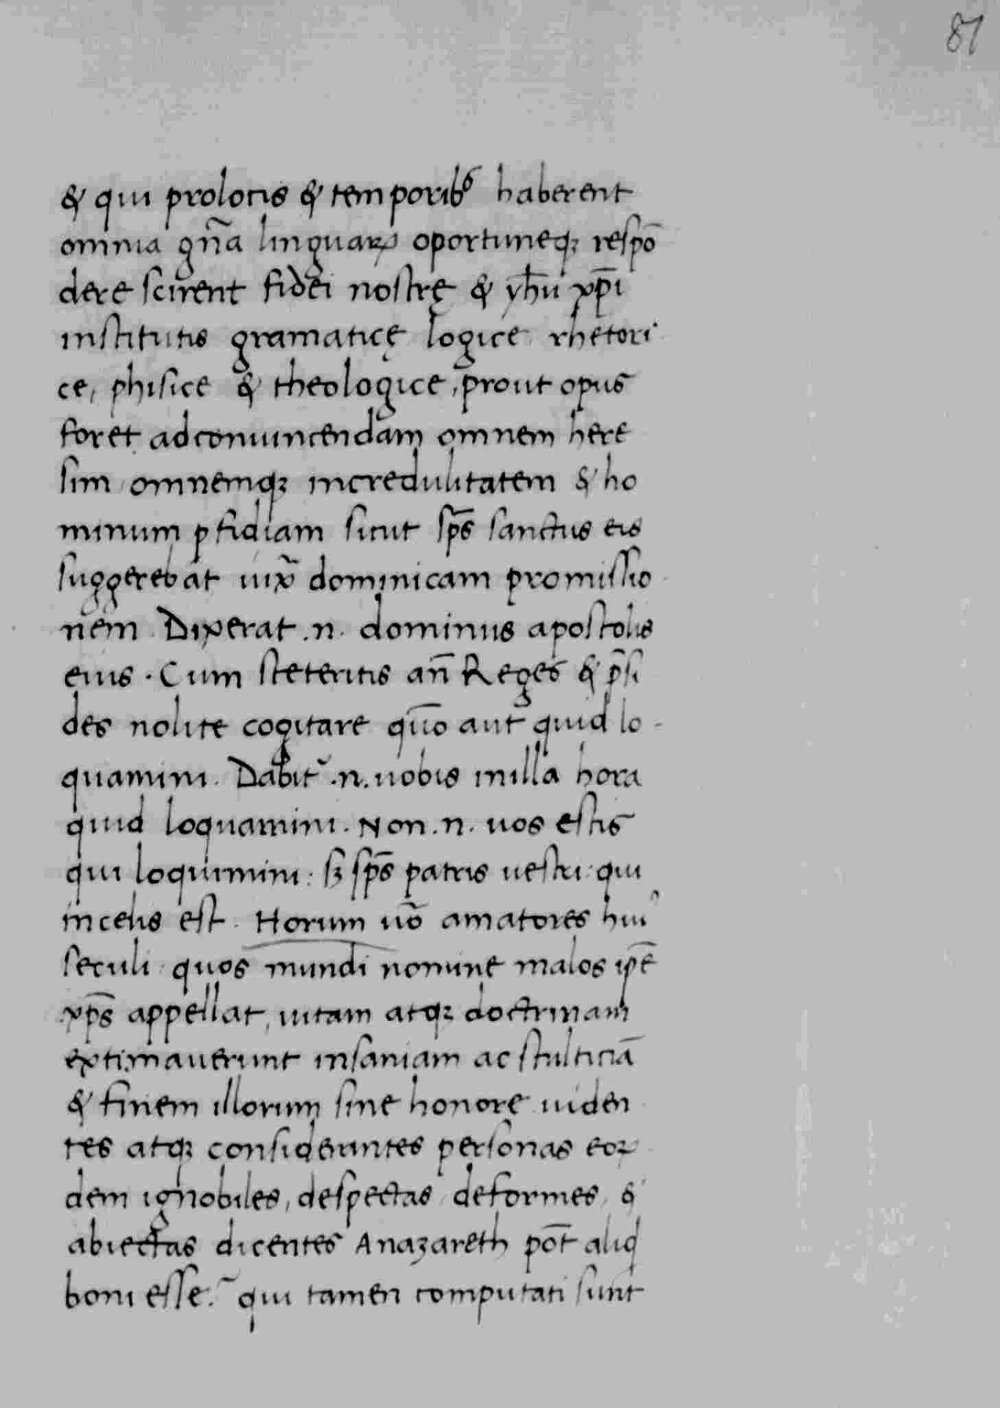 87
& qui prolocis & temporibꝰ haberent
omnia gn̄a linguaꝝ oportuneqꝫ respō
dere scirent fidei nostrę & yhū xp̄i
institutis gramaticę logice rhetori
ce, phisice & theologice, prout opus
foret adconuincendam omnem here
sim omnemqꝫ incredulitatem & ho
minum ꝑfidiam sicut sp̄s sanctus eis
suggerebat iuxͣ dominicam promissio
nem. Dixerat .n. dominus apostolis
eius. Cum steteritis an̄ Reges & p̄si
des nolite cogitare quō aut quid lo-
quamini. Dabit᷑ .n. uobis inilla hora
quid loquamini. Non .n. uos estis
qui loquimini: sꝫ sp̄s patris uestri: qui
incelis est. Horum uō amatores huiꝰ
seculi quos mundi nomine malos ip̄e
xp̄s appellat, uitam atqꝫ doctrinam
extimauerunt insaniam ac stulticiā
& finem illorum sine honore uiden
tes atqꝫ considerantes personas eoꝝ
dem ignobiles, despectas deformes, &
abiectas dicentes Anazareth pōt aliqd
boni esse? qui tamen computati sunt